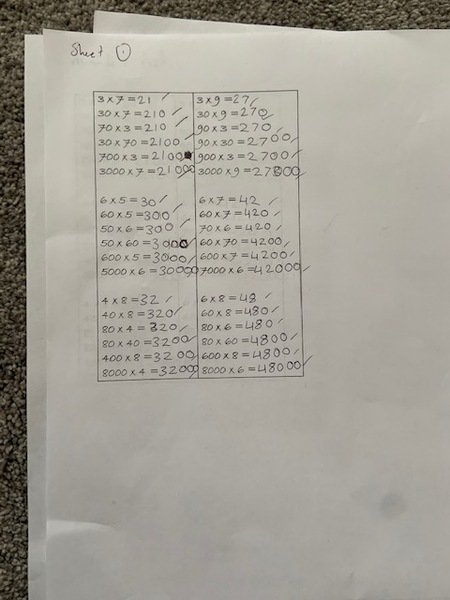 Sheet 1
3 × 7 = 21
30 × 7 = 210
70 × 3 = 210
30 × 70 = 2100
700 × 3 = 2100
3000 × 7 = 21000
6 × 5 = 30
60 × 5 = 300
50 × 6 = 300
50 × 60 = 3000
600 × 5 = 3000
5000 × 6 = 30000
4 × 8 = 32
40 × 8 = 320
80 × 4 = 320
80 × 40 = 3200
400 × 8 = 3200
8000 × 4 = 32000
3 × 9 = 27
30 × 9 = 270
90 × 3 = 270
90 × 30 = 2700
900 × 3 = 2700
3000 × 9 = 27000
6 × 7 = 42
60 × 7 = 420
70 × 6 = 420
60 × 70 = 4200
600 × 7 = 4200
7000 × 6 = 42000
6 × 8 = 48
60 × 8 = 480
80 × 6 = 480
80 × 60 = 4800
600 × 8 = 4800
8000 × 6 = 48000